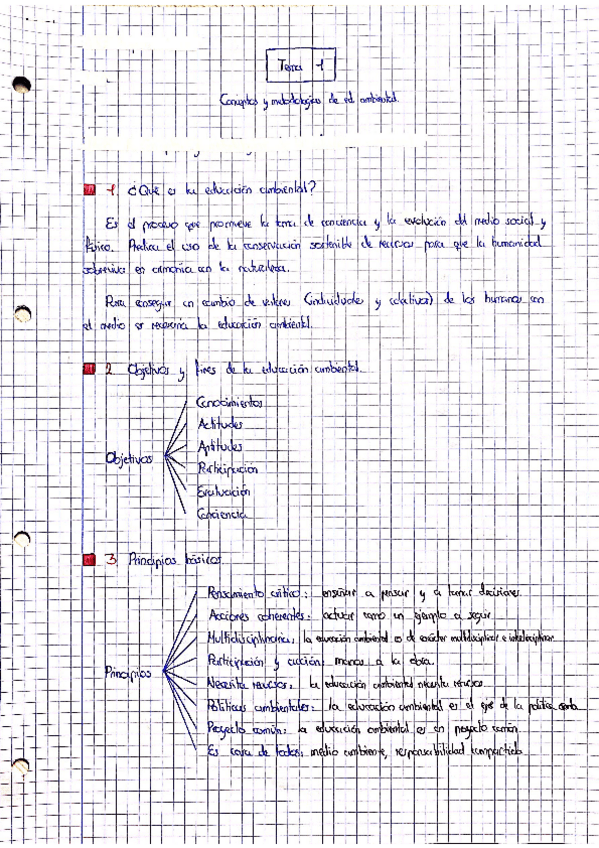 Tema 1
Conceptos y metodologías de ed. ambiental.
1. ¿Qué es la educación ambiental?
Es el proceso que promueve la toma de conciencia y la evolución del medio social y
físico. Predica el uso de la conservación sostenible de recursos para que la humanidad
sobreviva en armonía con la naturaleza.
Para conseguir un cambio de valores (individuales y colectivos) de los humanos con
el medio se necesita la educación ambiental.
2. Objetivos y fines de la educación ambiental.
Objetivos
Conocimientos
Actitudes
Aptitudes
Participación
Evaluación
Conciencia
3. Principios básicos.
Principios
Pensamiento crítico: enseñar a pensar y a tomar decisiones.
Acciones coherentes: actuar como un ejemplo a seguir
Multidisciplinaria: la educación ambiental es de carácter multidisciplinar e interdisciplinar
Participación y acción: manos a la obra.
Necesita recursos: la educación ambiental necesita recursos.
Políticas ambientales: la educación ambiental es el eje de la política amb.
Proyecto común: la educación ambiental es un proyecto común
Es cosa de todos: medio ambiente, responsabilidad compartida.